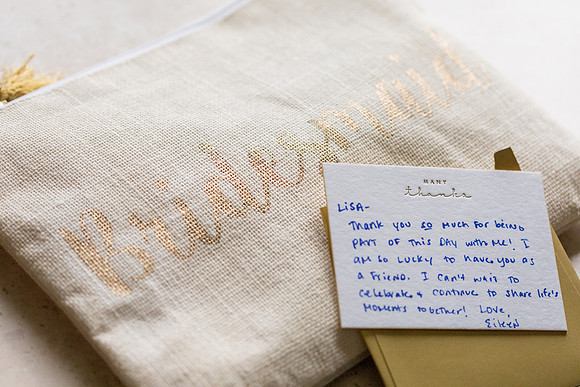 Bridesmaid
MANY
thanks
LiSA-
Thank you so much for being
part of this day with me! I
am so lucky to have you as
a friend. I can't wait to
celebrate & continue to share life's
moments together! Love,
Eileen